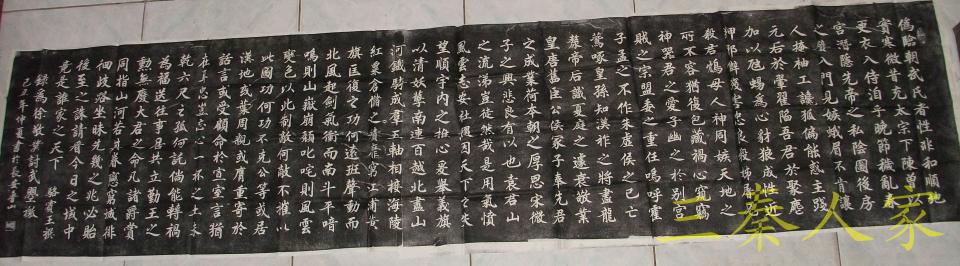 偽臨朝武氏者性非和順地
實寒微昔充太宗下陳曾以
更衣入侍洎乎晚節穢亂春
宮潛隱先帝之私陰圖後房
之嬖入門見嫉蛾眉不肯讓
人掩袖工讒狐媚偏能惑主踐
元后於翬翟陷吾君於聚麀
加以虺蜴為心豺狼成性近
狎邪僻殘害忠良殺姊屠兄
殺君鴆母人神同嫉天地之
所不容猶復包藏禍心窺竊
神器君之愛子幽之於別宮
賊之宗盟委之重任嗚呼霍
子孟之不作朱虛侯之已亡
燕啄皇孫知漢祚之將盡龍
漦帝后識夏庭之遽衰敬業
皇唐舊臣公侯冢子奉先君
之成業荷本朝之厚恩宋微
子之興悲良有以也袁君山
之流涕豈徒然哉是用氣憤
風雲志安社稷因天下之失
望順宇內之推心爰舉義旗
以清妖孽南連百越北盡山
河鐵騎成群玉軸相接海陵
紅粟倉儲之積靡窮江浦黃
旗匡復之功何遠班聲動而
北風起劍氣衝而南斗平喑
嗚則山嶽崩頹叱吒則風雲
變色以此制敵何敵不摧以
此圖功何功不克公等或居
漢地或葉周親或膺重寄於
話言或受顧命於宣室言猶
在耳忠豈忘心一抔之土未
乾六尺之孤何託倘能轉禍
為福送往事居共立勤王之
勳無廢大君之命凡諸爵賞
同指山河若其眷戀窮城徘
徊歧路坐昧先幾之兆必貽
後至之誅請看今日之域中
竟是誰家之天下 駱賓王撰
錄為徐敬業討武曌檄
己丑年仲夏書於長安
三秦人家